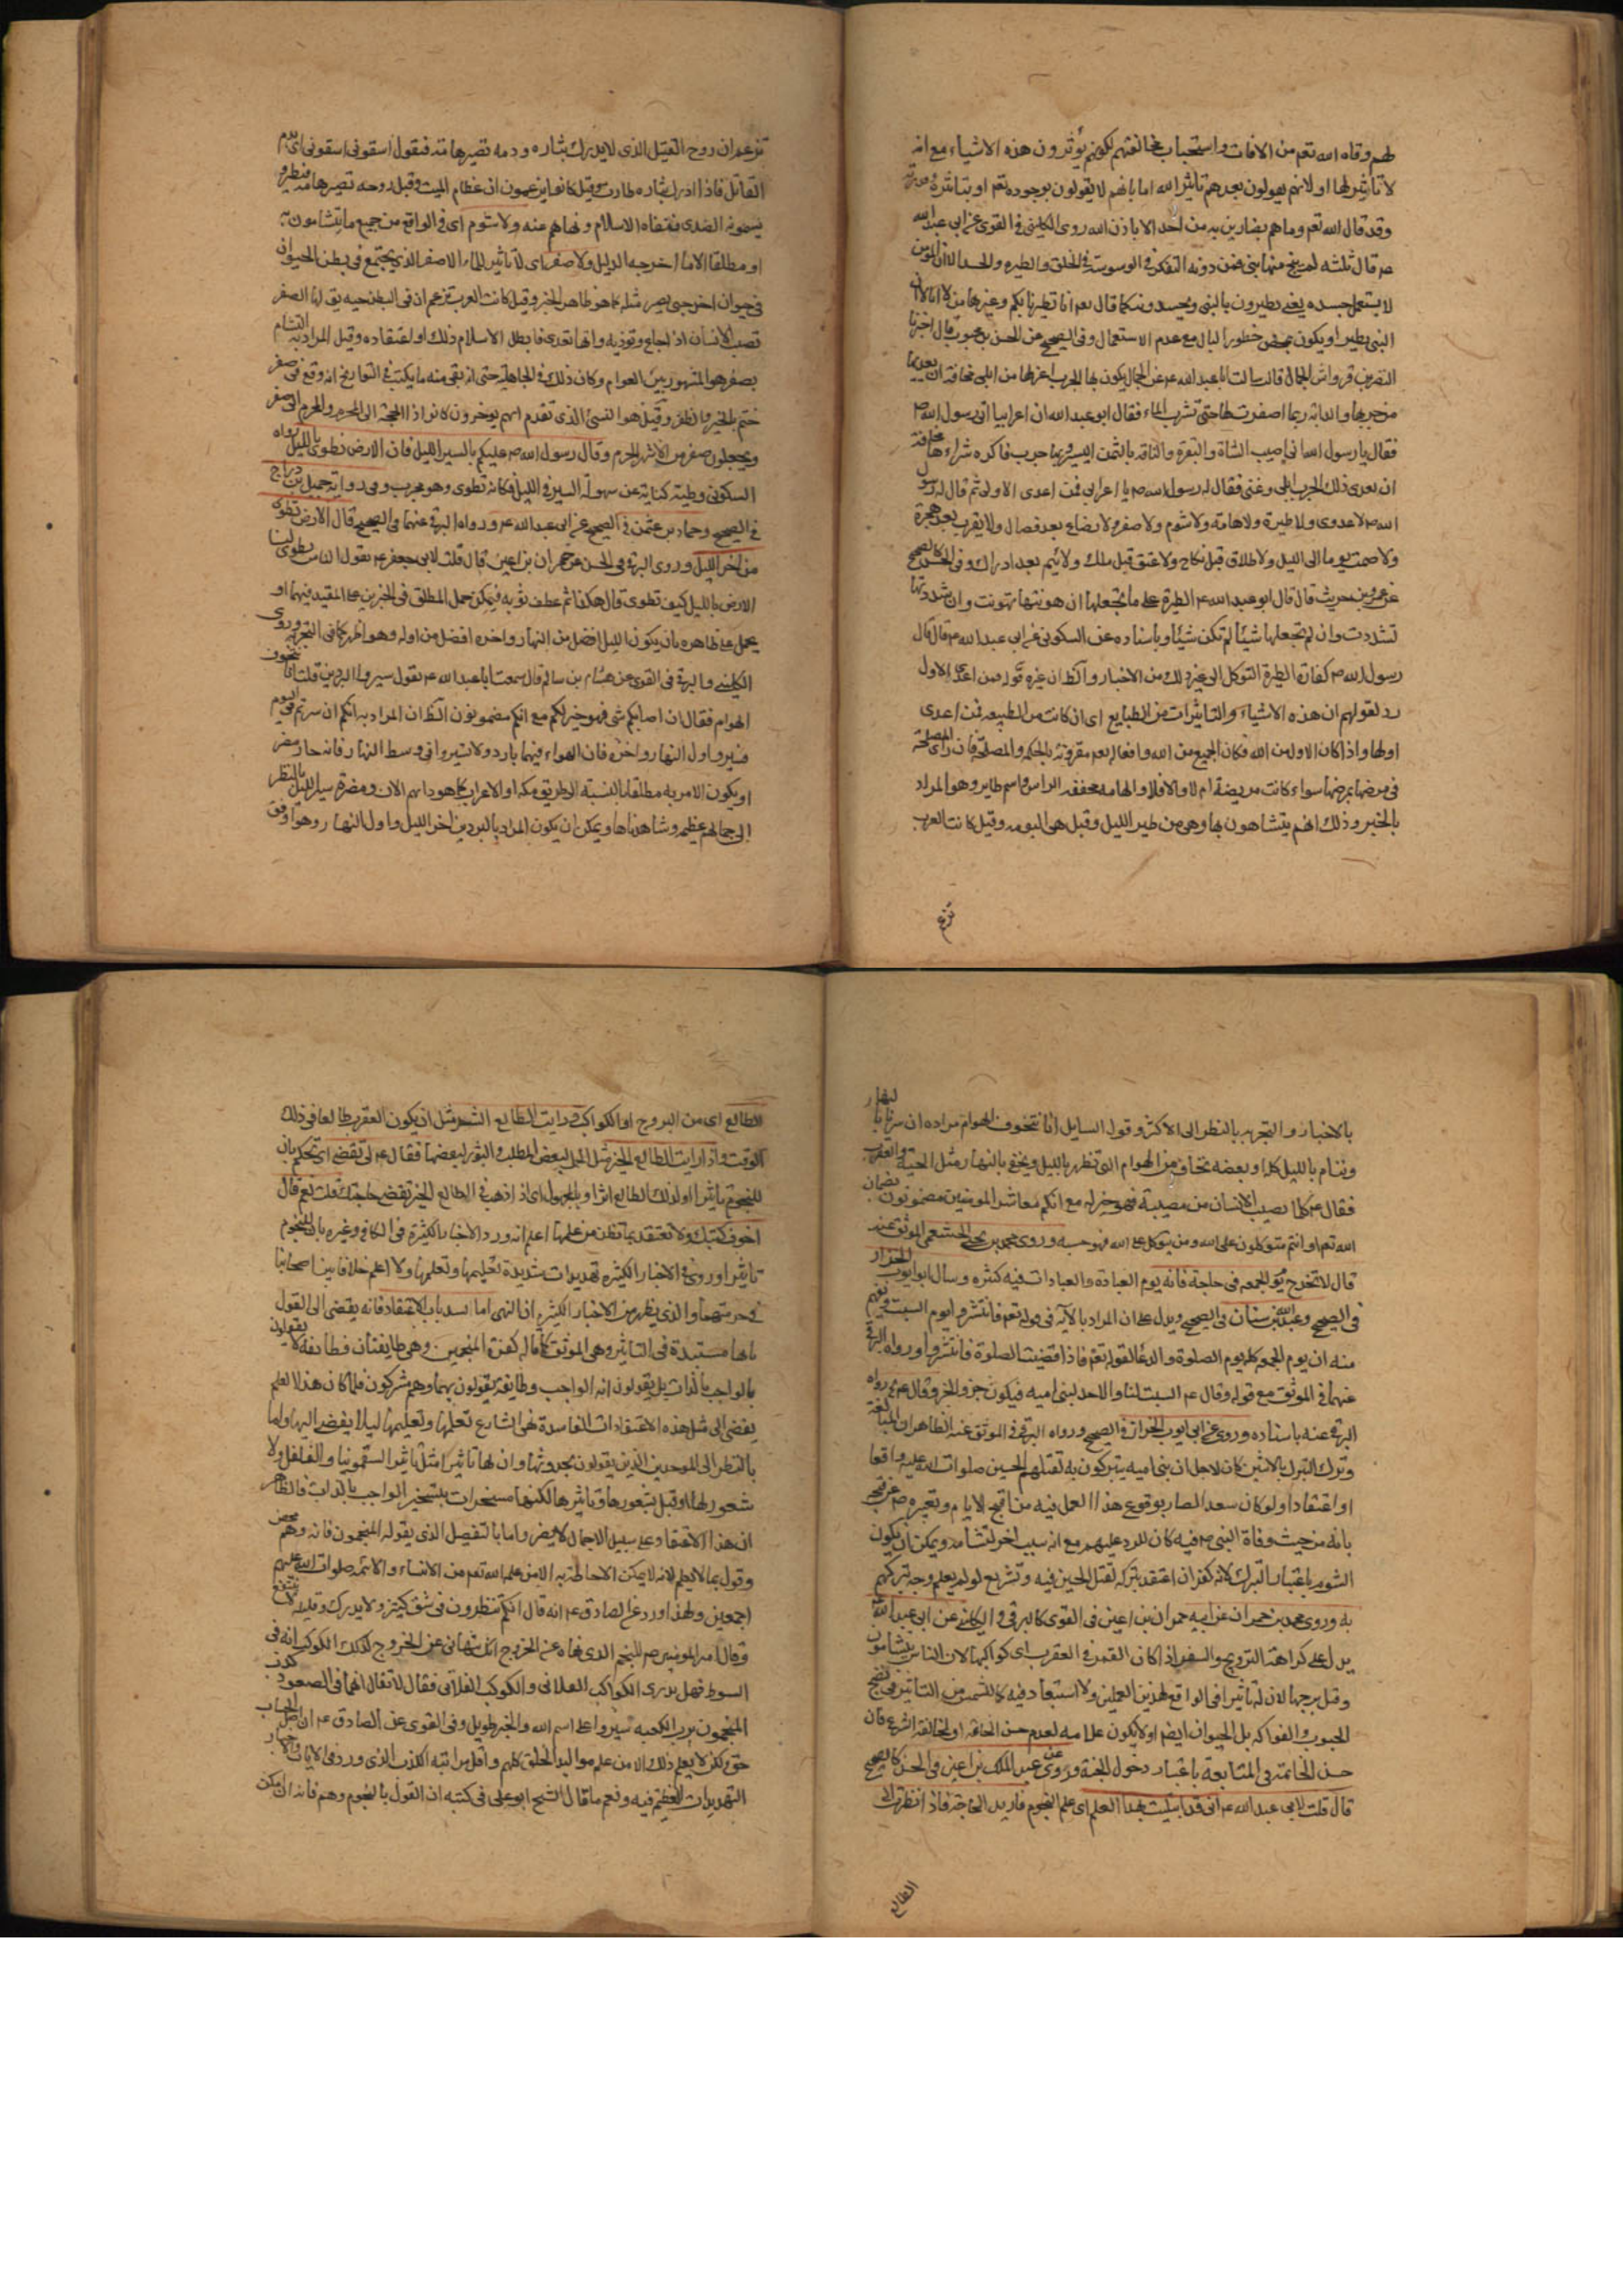 لهم وقاه الله تعم من الافات واستحباب مخالفتهم لكونهم يؤثرون هذه الاشياء مع انه
لا تأثير لها او لانهم يقولون بعدهم تأثير الله اما بانهم لا يقولون بوجوده تعم او بتأثيره
وقد قال الله تعم وما هم بضارين به من احد الا باذن الله روى الكليني في القوى عن ابي عبد الله
ص قال ثلثه لم ينج منها نبي فمن دونه التفكر في الوسوسة في الخلق والطيره والحسد الا ان المؤمن
لا يستعمل حسده يعني يطيرون بالنبي ويحسدونه كما قال تعم انا تطيرنا بكم وغيرها من
النبي يطير او يكون محض خطور البال مع عدم الاستعمال وفي الصحيح عن الحسن بن محبوب قال اخبرنا
النضر بن قرواش الجمال قال سالت ابا عبد الله ع عن الجمال يكون بها الجرب اعزلها من ابلي مخافة ان يعديها
من جربها والدابه ربما اصفرت لها حتى تشرب الماء فقال ابو عبد الله ان اعرابيا اتى رسول الله ص
فقال يا رسول الله اني اصيب الشاة والبقره والناقه بالثمن اليسير وبها جرب فاكره شراءها مخافة
ان يعدى ذلك الجرب ابلي وغنمي فقال له رسول الله ص يا اعرابي فمن اعدى الاول ثم قال رسول
الله ص لا عدوى ولا طيرة ولا هامة ولا شوم ولا صفر ولا رضاع بعد فصال ولا تعرب بعد هجرة
ولا صمت يوما الى الليل ولا طلاق قبل نكاح ولا عتق قبل ملك ولا يتم بعد ادراك وفي الحسن كالصحيح
عن عمرو بن حريث قال قال ابو عبد الله ع الطيرة على ما تجعلها ان هونتها تهونت وان شددتها
تشددت وان لم تجعلها شيئا لم تكن شيئا وباسناده عن السكوني عن ابي عبد الله ع قال قال
رسول الله ص كفارة الطيرة التوكل الى غير ذلك من الاخبار والظان غيره قوله فمن اعدى الاول
رد لقولهم ان هذه الاشياء والتاثيرات من الطبايع اى ان كانت من الطبيعه فمن اعدى
اولها واذا كان الاول من الله فكان الجميع من الله وافعاله تعم مقرونة بالحكم والمصلحة فان راى المصلحة
في مرضها يمرضها سواء كانت مريضة ام لا والا فلا والهامه مخففه الراس واسم طاير وهو المراد
بالخبر وذلك انهم يتشاهون بها وهي من طير الليل وقيل هي البومه وقيل كانت العرب
تزعم
تزعم ان روح القتيل الذى لا يدرك بثاره ودمه تصير هامة فتقول اسقوني اسقوني اى بدم
القاتل فاذا ادرك بثاره طارت وقيل كانوا يزعمون ان عظام الميت وقيل روحه تصير هامة فتطير و
يسمونه الصدى فنفاه الاسلام ونهاهم عنه ولا شوم اى في الواقع من جميع ما يتشامون به
او مطلقا الا ما اخرجه الدليل ولا صفر اى لا تاثير للماء الاصفر الذى يجتمع في بطن الحيوان
في حيوان اخر حتى يصير مثله كما هو ظاهر الخبر وقيل كانت العرب تزعم ان في البطن حيه يقال لها الصفر
تصيب الانسان اذا جاع وتوذيه وانها تعدى فابطل الاسلام ذلك او اعتقاده وقيل المراد به التشام
بصفر هو المشهور بين العوام وكان ذلك في الجاهلية حتى انه بقي منه ما يكتب في التواريخ انه وقع في صفر
ختم بالخير والظفر وقيل هو النسئ الذى تقدم انهم يوخرون كانوا ذا الحجة الى المحرم والمحرم الى صفر
ويجعلون صفر من الاشهر الحرم وقال رسول الله ص عليكم بالسير بالليل فان الارض تطوى بالليل رواه
السكوني وطيه كناية عن سهولة السير في الليل فكانه تطوى وهو مجرب وفي رواية جميل بن دراج
في الصحيح وحماد بن عثمن في الصحيح عن ابي عبد الله ع ورواه البرقي عنهما في الصحيح قال الارض تطوى
من اخر الليل وروى البرقي في الحسن عن حمران بن اعين قال قلت لابي جعفر ع يقول الناس تطوى لنا
الارض بالليل كيف تطوى قال هكذا ثم عطف ثوبه فيمكن حمل المطلق في الخبرين على المقيد فيهما او
يحمل على ظاهره بان يكون الليل افضل من النهار واخره افضل من اوله وهو اظهر كما في التجربه وروى
الكليني والبرقي في القوى عن هشام بن سالم قال سمعت ابا عبد الله ع يقول سيروا البردين قلت انا نتخوف
الهوام فقال ان اصابكم شئ فهو خير لكم مع انكم مضمونون الظان المراد به انكم ان سرتم في اليوم
فسيروا اول النهار واخره فان الهواء فيهما بارد ولا تسيروا في وسط النهار فانه حار مضر
او يكون الامر به مطلقا بالنسبة الى طريق مكه او الاعراب كما هو دابهم الان ومضرة سير الليل بالنظر
الى جمالهم عظيم وشاهدناها ويمكن ان يكون المراد بالبردين اخر الليل واول النهار وهو اوفق
بالاخبار والتجربه بالنظر الى الاكثر وقول السايل انا نتخوف الهوام مراده ان سرنا بالنهار
وننام بالليل كله او بعضه نخاف من الهوام التي تظهر بالليل ويخفى بالنهار مثل الحية والعقرب
فقال ع كلما يصيب الانسان من مصيبة فهو خير له مع انكم معاشر المومنين مضمونون بضمان
الله تعم او انتم متوكلون على الله ومن يتوكل على الله فهو حسبه وروى محمد بن يحيى الخثعمي الموثق عنه
قال لا تخرج يوم الجمعه في حاجة فانه يوم العبادة والعبادات فيه كثيره وسال ابو ايوب الخزاز
في الصحيح وعبد الله بن سنان في الصحيح ويدل على ان المراد بالآية في قوله تعم فانتشروا يوم السبت ويفهم
منه ان يوم الجمعه كله يوم الصلوة والدعا لقوله تعم فاذا قضيت الصلوة فانتشروا ورواه البرقي
عنهما في الموثق مع قوله وقال ع السبت لنا والاحد لبني اميه فيكون جزو الخبر وقال ع رواه
البرقي عنه باسناده وروى عن ابي ايوب الخزاز في الصحيح ورواه البرقي في الموثق عنه الظاهر ان المبالغة
وترك التبرك بالاثنين كان لاجل ان بني اميه يتبركون به لقتلهم الحسين صلوات الله عليه واقعا
او اعتقادا ولو كان سعد الصار بوقوع هذا العمل فيه من اقبح الايام وتعبيره ص عن قبح
بانه من حيث وفاة النبي ص فيه كان للرد عليهم مع انه سبب اخر لتشامه ويمكن ان يكون
الشوم باعتبار التبرك لانه كفر ان اعتقد بتركه لقتل الحسين فيه وتشريع لو لم يعلم وجه تبركهم
به وروى محمد بن حمران عن ابيه حمران بن اعين في القوى كالبرقي و الكليني عن ابي عبد الله
يدل على كراهة التزويج والسفر اذا كان القمر في العقرب اى كواكبها لان الناس يتشامون
وقيل برجها لان له تاثيرا في الواقع لهذين العملين ولا استبعاد فيه كالشمس من التاثير في نضج
الحبوب والفواكه بل الحيوان ايضا او لا يكون علامه لعدم حسن العاقبة او لمخالفة الشرع فان
حسن الخاتمة في المتابعة باعتبار دخول الجنة وروى عن عبد الملك بن اعين في الحسن كالصحيح
قال قلت لابي عبد الله ع اني قد ابتليت بهذا العلم اى علم النجوم فاريد الحاجة فاذا نظرت الى
الطالع
الطالع اى من البروج او الكواكب ورايت الطالع الشر مثل ان يكون العقرب طالعا في ذلك
الوقت واذا رايت الطالع الخير مثل الحمل لبعض المطلب والثور لبعضها فقال ع لي تقضي اى تحكم بان
للنجوم تاثيرا او لذلك الطالع اثرا وبالمجهول اى اذا ذهبت في الطالع الخير تقضي حاجتك قلت نعم قال
احرق كتبك ولا تعتقد بما تظن من علمها اعلم انه ورد الاخبار الكثيرة في الكافي وغيره بان للنجوم
تاثيرا وروى في الاخبار الكثيره تهديدات شديدة لتعليمها وتعلمها ولا اعلم خلافا بين اصحابنا
في حرمتهما والذى يظهر من الاخبار الكثيره ان النهى اما لسد باب الاعتقاد فانه يفضي الى القول
بانها مستبدة في التاثير وهي الموثق كما قاله كفرة المنجمين وهي طايفتان فطائفة لا يقولون
بالواجب بالذات بل يقولون انه الواجب وطايفة يقولون بهما وهم مشركون فلما كان هذا العلم
يفضى الى مثل هذه الاعتقادات الفاسدة نهى الشارع تعلمها وتعليمها ليلا يفضى اليها واما
بالنظر الى الموحدين الذين يقولون بحدوثها وان لها تاثيرا مثل تاثير السقمونيا والفلفل ولا
شعور لها او قيل بشعورها وتاثيرها لكنها مسخرات بتسخير الواجب بالذات فالظاهر
ان هذا الاعتقاد على سبيل الاجمال لا يضر واما بالتفصيل الذى يقوله المنجمون فانه وهم محض
وقول بما لا يعلم لانه لا يمكن الاحاطة به الا من علمه الله تعم من الانبياء والائمه صلوات الله عليهم
اجمعين ولهذا ورد عن الصادق ع انه قال انكم تنظرون في شئ كثيره لا يدرك وقليله لا ينتفع
وقال امير المومنين ص للمنجم الذى نهاه عن الخروج انك تنهاني عن الخروج لذلك الكوكب انه في
السوط فهل تدرى الكواكب الفلاني والكوكب الفلاني فقال لا فقال انهما في الصعود كذب
المنجمون برب الكعبه سيروا على اسم الله والخبر طويل وفي القوى عن الصادق ع ان اصل الحساب
حق ولكن لا يعلم ذلك الا من علم مواليد الخلق كلهم واقل مراتبه الكذب الذى ورد في الايات والاخبار
التهديدات العظيم فيه ونعم ما قال الشيخ ابو علي في كتبه ان القول بالنجوم وهم فانه ان امكن